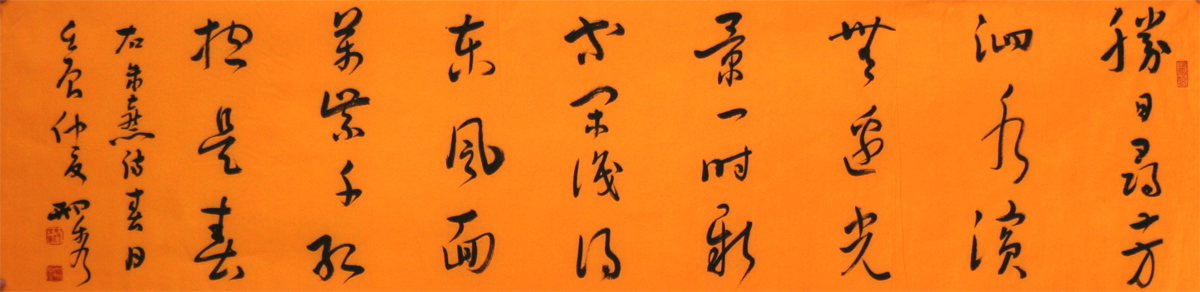 勝日尋芳
泗水濱
無邊光
景一時新
等閑識得
東風面
萬紫千紅
總是春
右朱熹詩春日
壬寅仲夏